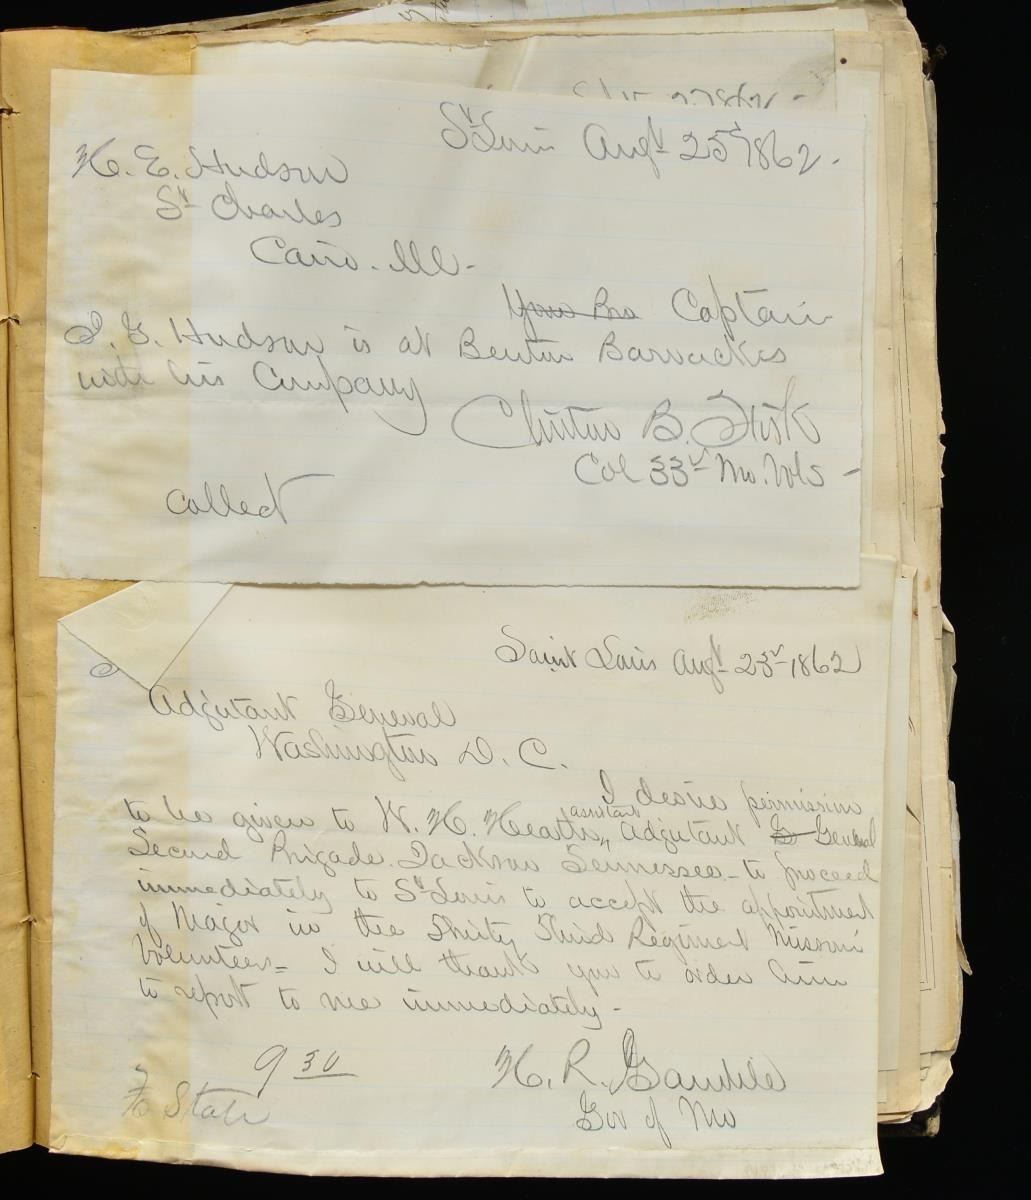 St Louis Augt 25th 1862.
H. E. Hudson
St Charles
Cairo. Ill-
Your Bro Captain
S. G. Hudson is at Benton Barrackes
with his Company
Clinton B. Fisk
Col 33d Mo. Vols -
collect
Saint Louis Augt 23d 1862
Adjutant General
Washington D. C.
I desire permission
to be given to W. H. Heath, assistant Adjutant G General
Second Brigade Jackson Tennessee - to proceed
immediately to St Louis to accept the appointment
of Major in the Thirty Third Regiment Missouri
Volunteers = I will thank you to order him
to report to me immediately -
9 30
H. R. Gamble
Gov of Mo
State